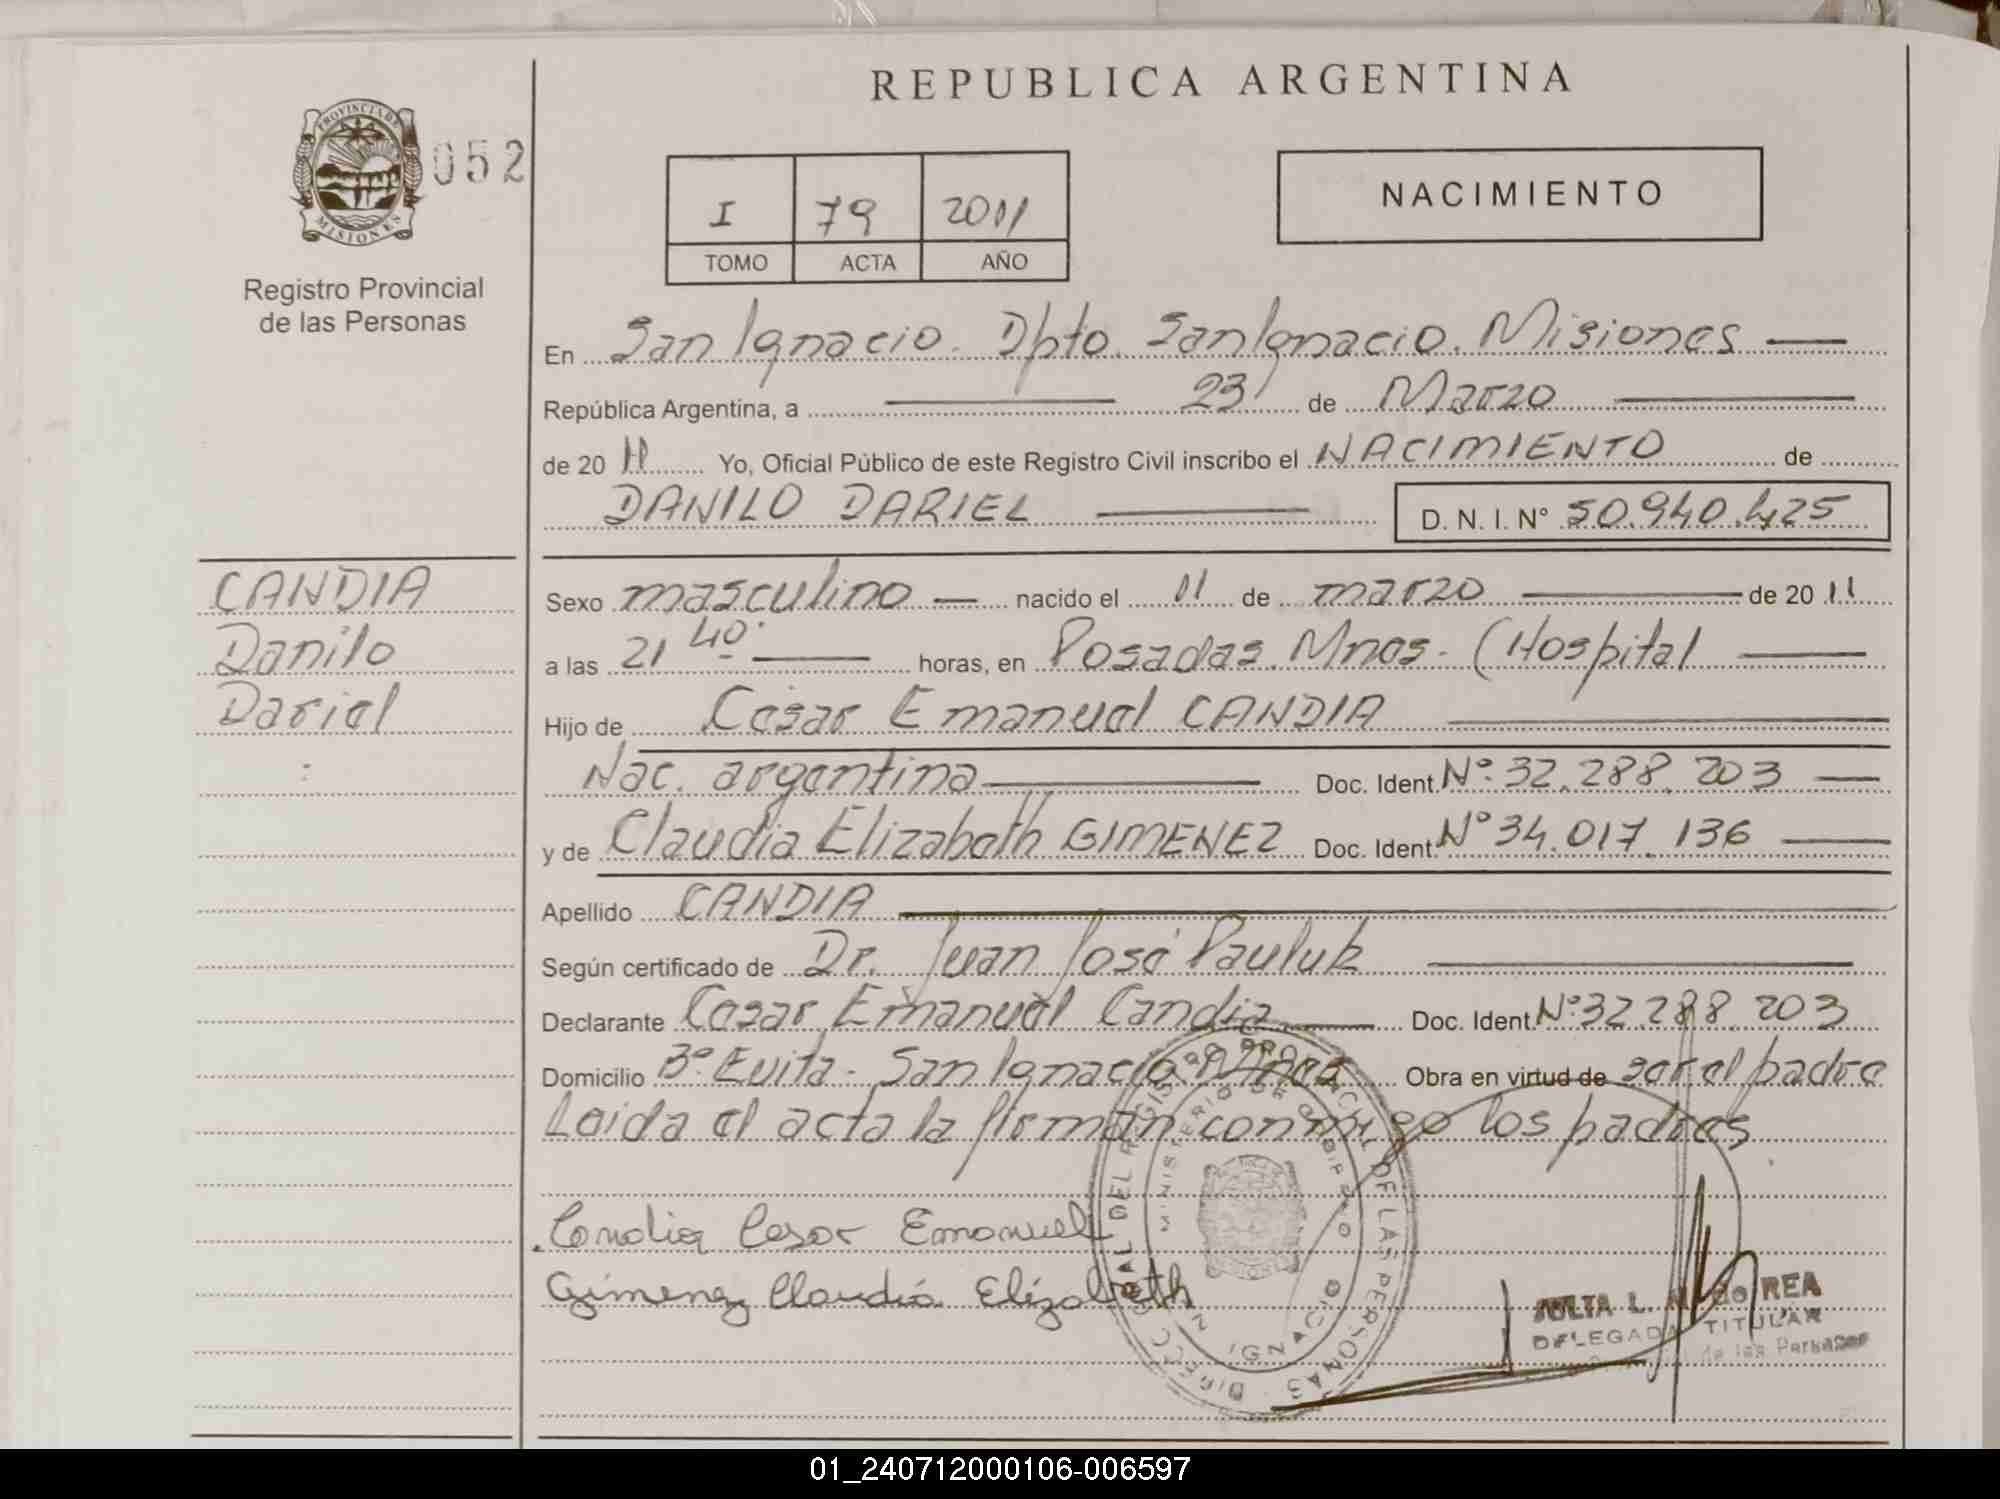 REPUBLICA ARGENTINA
PROVINCIA DE
MISIONES
052
Registro Provincial
de las Personas
I 79 2011
TOMO ACTA AÑO
NACIMIENTO
En San Ignacio. Dpto. San Ignacio. Misiones
República Argentina, a 23 de Marzo
de 20 11 Yo, Oficial Público de este Registro Civil inscribo el NACIMIENTO de
DANILO DARIEL D. N. I. N° 50.940.425
CANDIA
Danilo
Dariel
Sexo masculino nacido el 11 de marzo de 20 11
a las 21 40 horas, en Posadas. Mnes. (Hospital
Hijo de Cesar Emanuel CANDIA
Nac. argentina Doc. Ident. N° 32.288.203
y de Claudia Elizabeth GIMENEZ Doc. Ident. N° 34.017.136
Apellido CANDIA
Según certificado de Dr. Juan José Pauluk
Declarante Cesar Emanuel Candia Doc. Ident. N° 32.288.203
Domicilio B° Evita - San Ignacio Mnes Obra en virtud de ser el padre
Leida el acta la firman conmigo los padres
Candia Cesar Emanuel
Gimenez Claudia Elizabeth
DIRECC GRAL DEL REGISTRO PROVINCIAL DE LAS PERSONAS
MINISTERIO DE GOBIERNO
IGNACIO
JULIA L. M. de REA
DELEGADA TITULAR
de las Personas
01_240712000106-006597